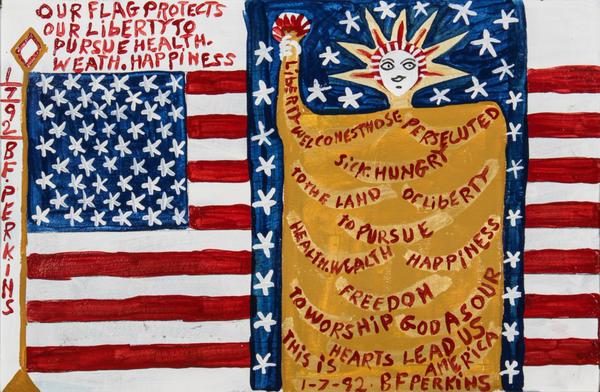 OUR FLAG PROTECTS
OUR LIBERTY TO
PURSUE HEALTH.
WEATH. HAPPINESS
1-7-92 B.F. PERKINS
LIBERTY WELCOMES THOSE PERSECUTED
SICK. HUNGRY
TO THE LAND OF LIBERTY
TO PURSUE
HEALTH. WEALTH HAPPINESS
FREEDOM
TO WORSHIP GOD AS OUR
HEARTS LEAD US
THIS IS AMERICA
1-7-92. B F PERKINS